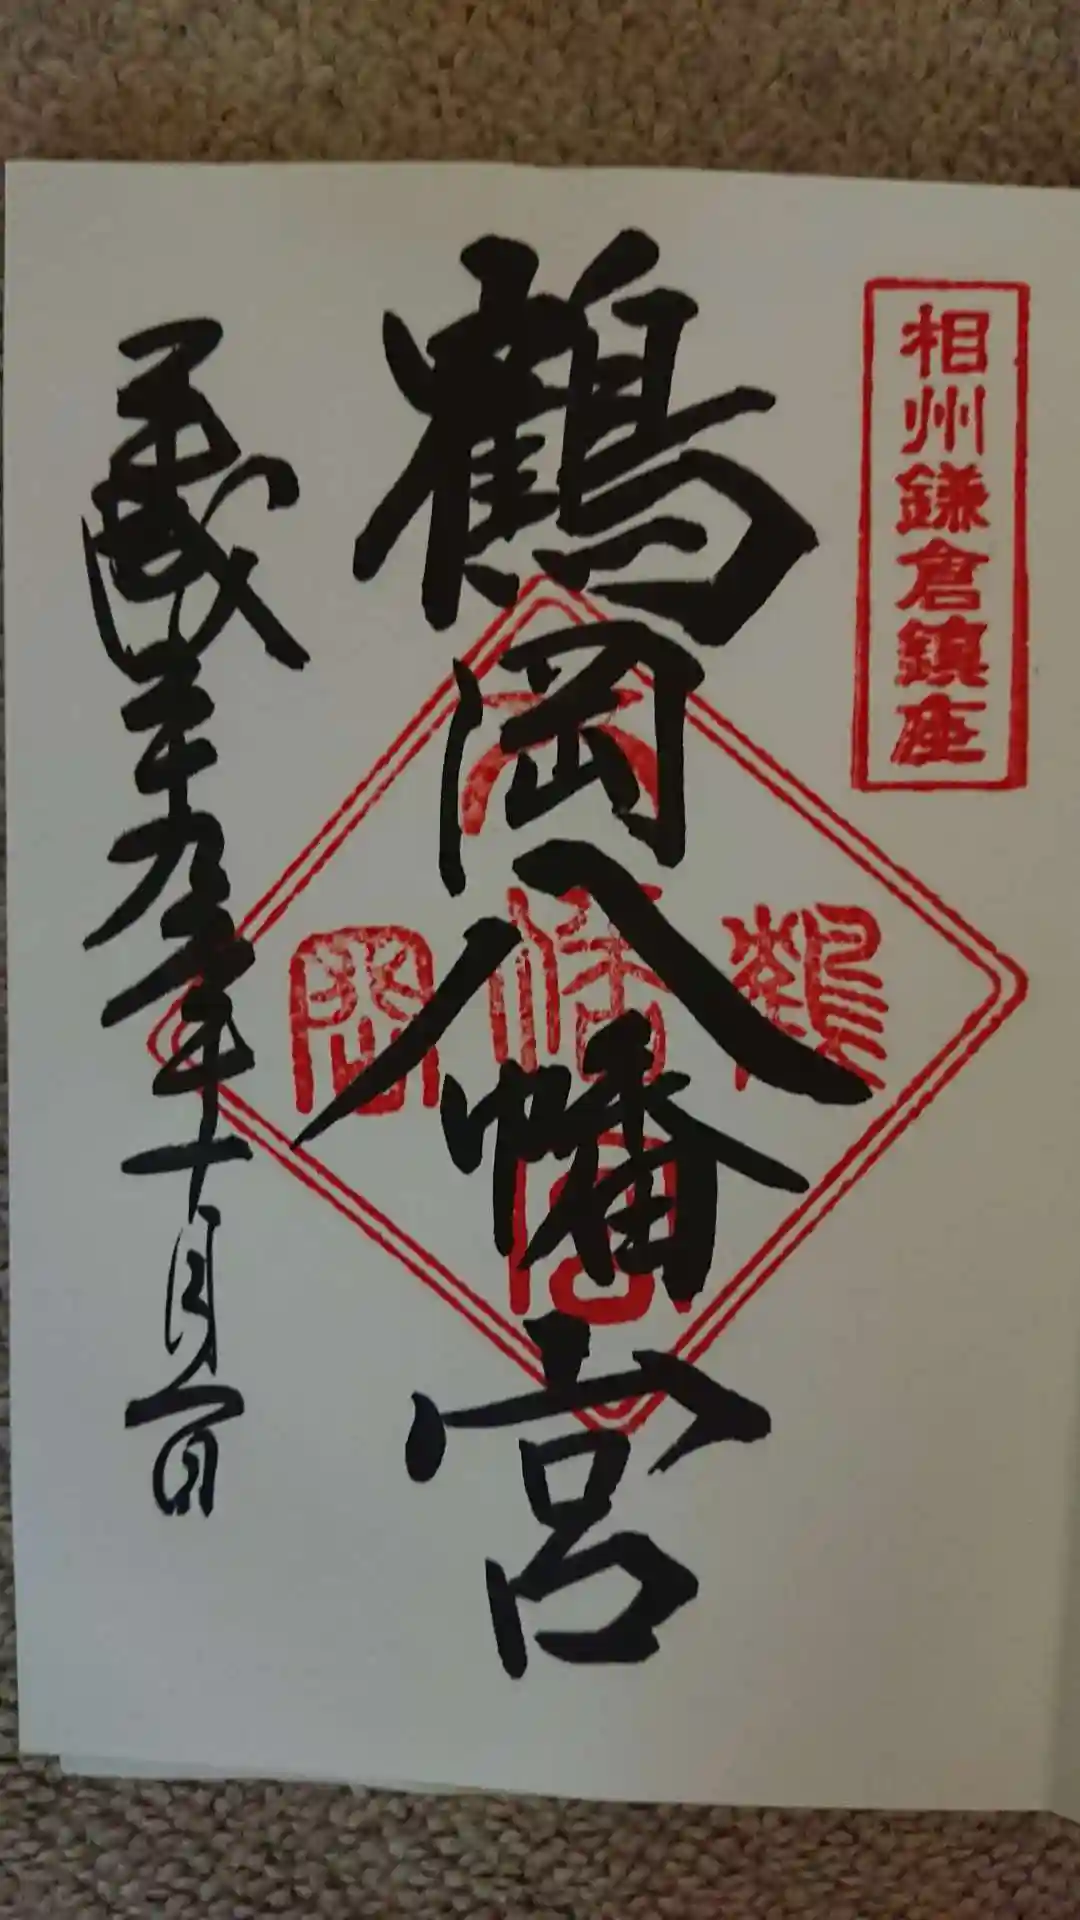 相州鎌倉鎮座
鶴岡八幡宮
鶴岡八幡宮
平成二十九年十月